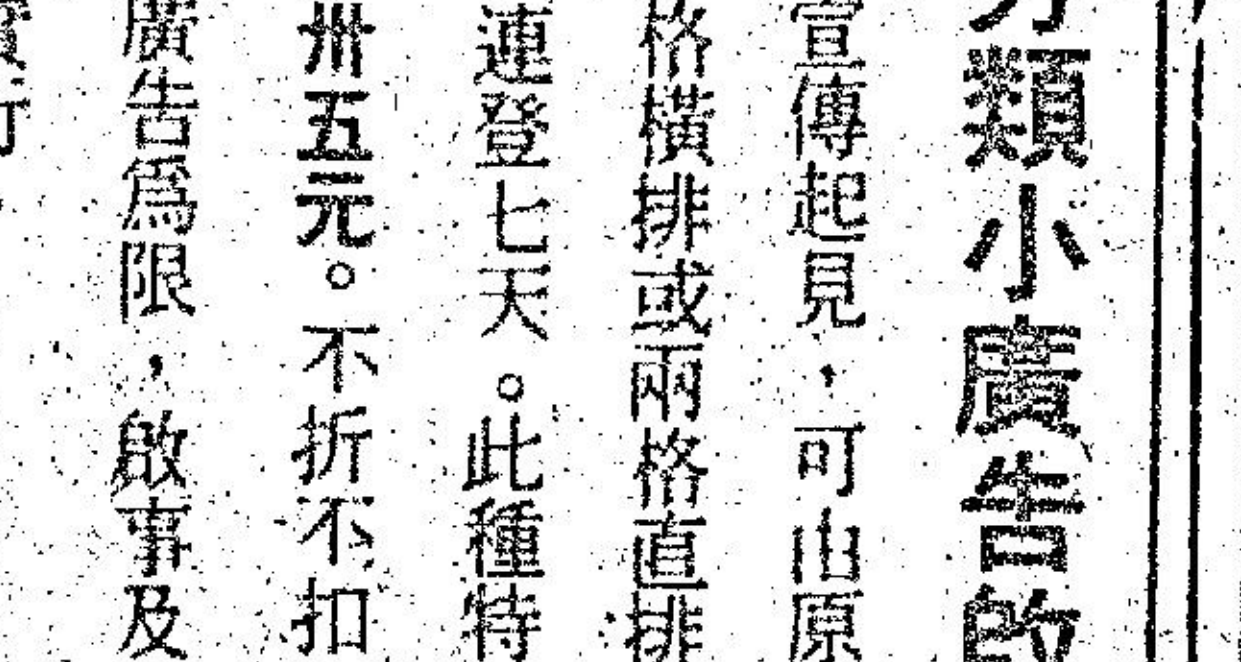 類小廣告啟
宣傳起見，可由原
格橫排或兩格直排
連登七天。此種特
卅五元。不折不扣
廣告爲限，啟事及